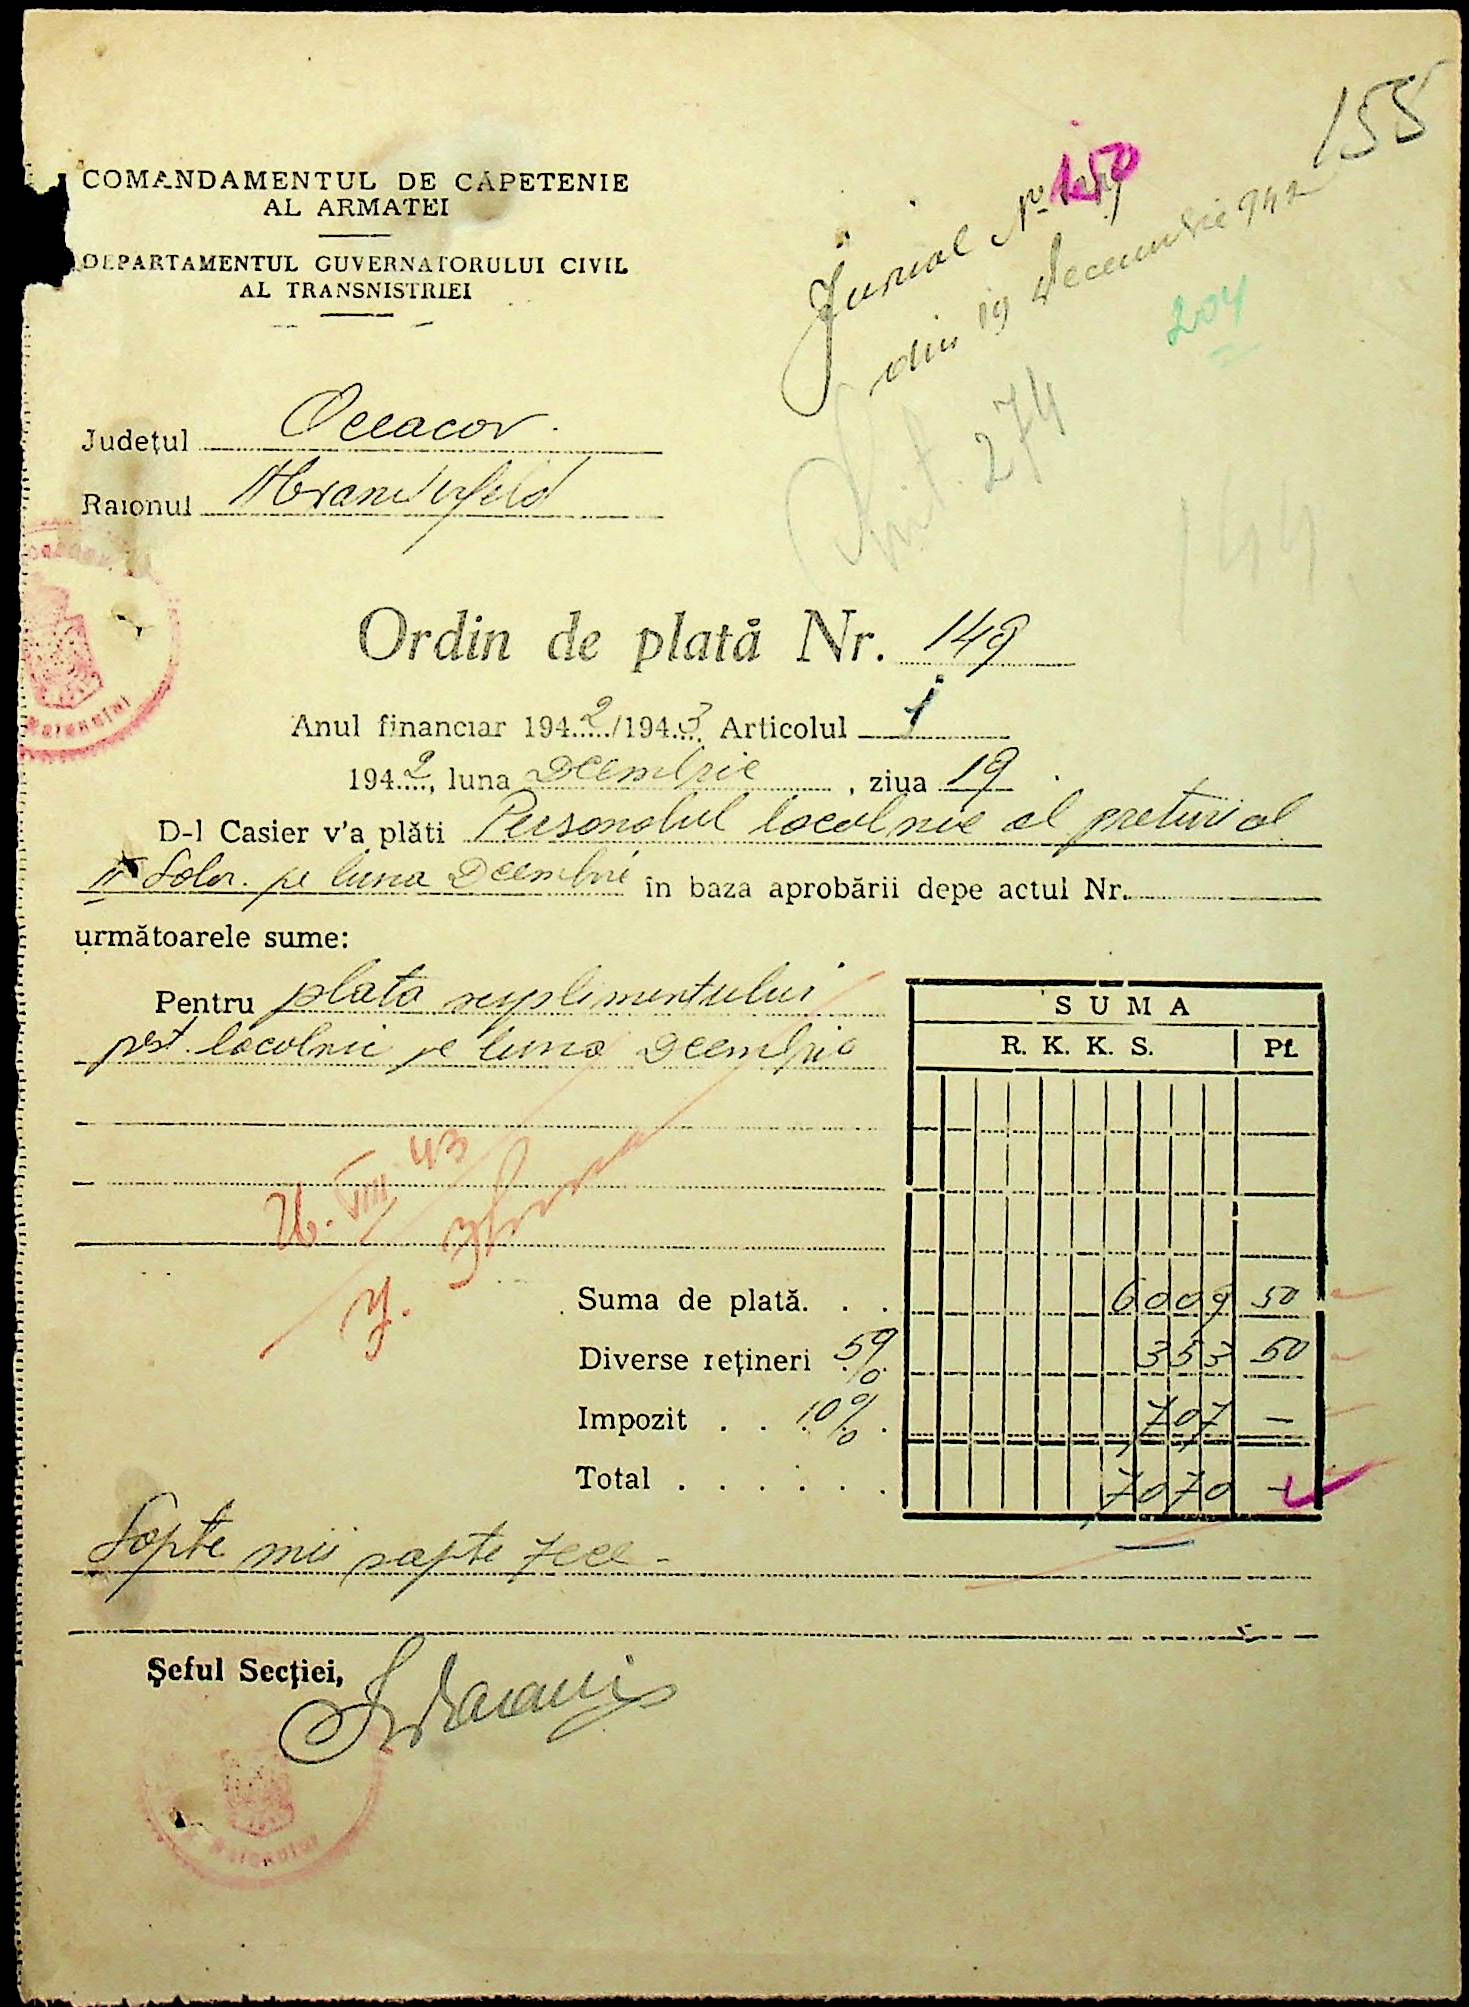 155
COMANDAMENTUL DE CAPETENIE
AL ARMATEI
DEPARTAMENTUL GUVERNATORULUI CIVIL
AL TRANSNISTRIEI
Jurnal No
din 19 Decembrie 942
204
274
144
Județul Oceacov
Raionul
Ordin de plată Nr. 149
Anul financiar 1942/1943 Articolul 1
1942, luna Decembrie, ziua 19
D-l Casier v'a plăti Personalul localnic al preturi al
pe luna Decembrie în baza aprobării depe actul Nr.
următoarele sume:
Pentru plata suplimentului
localnic pe luna Decembrie
SUMA
R. K. K. S. Pf.
VIII 43
Suma de plată. . . 6009 50
Diverse rețineri 5% 353 50
Impozit . . 10% . 707 —
Total . . . . . . 7070 —
Șapte mii șapte zece -
Șeful Secției,
Raionului